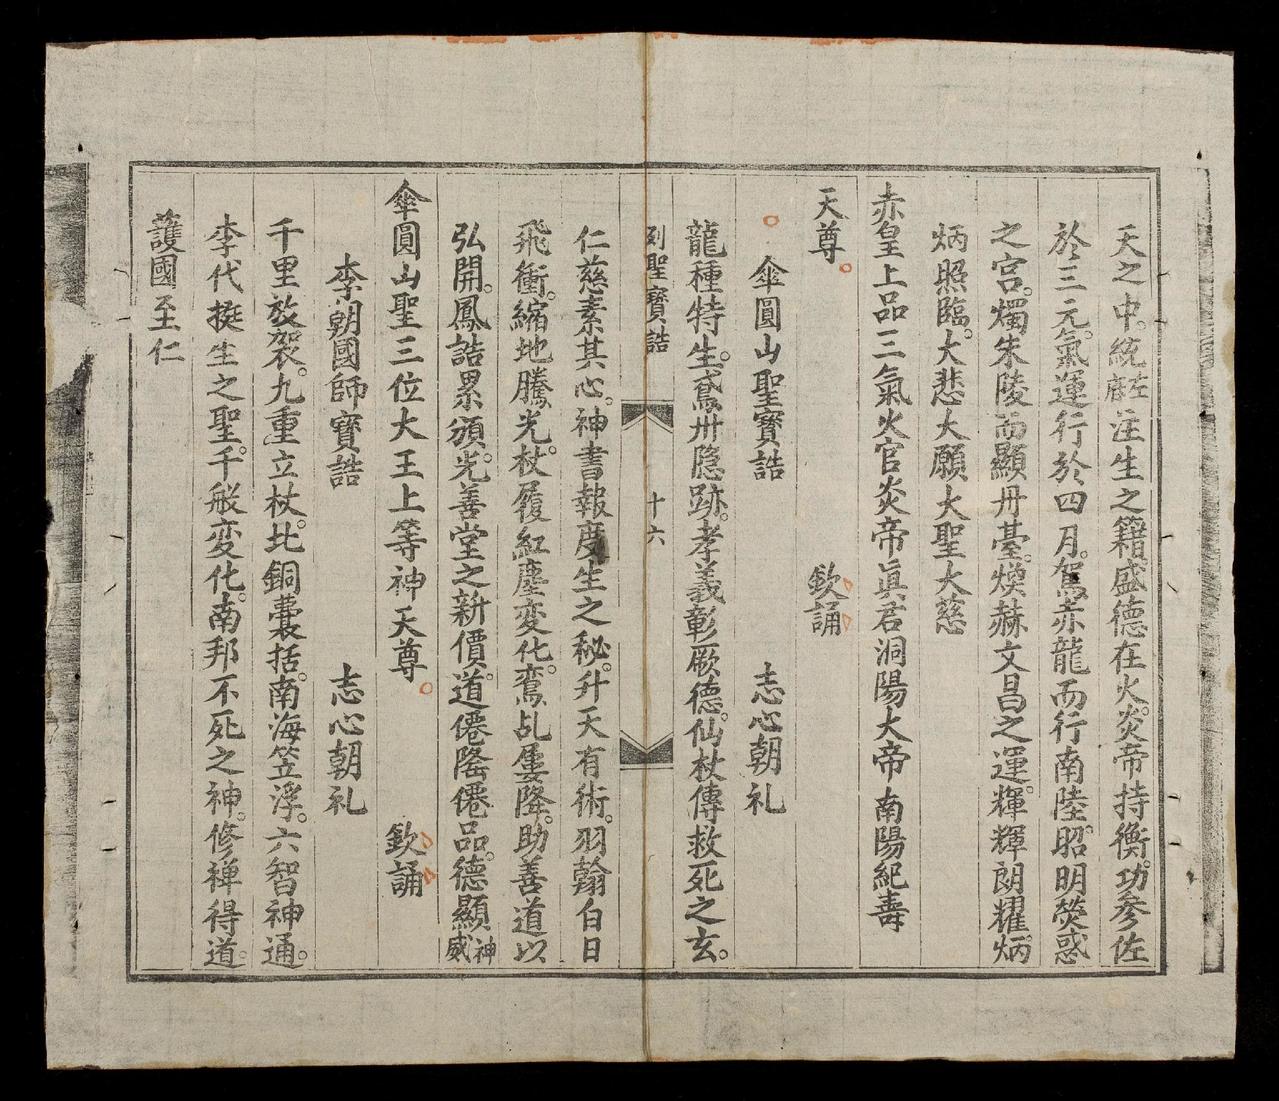 天之中。統注生之籍。盛德在火。炎帝持衡。功參佐
於三元。氣運行於四月。駕赤龍而行南陸。昭明熒惑
之宮。燭朱陵而顯丹臺。煥赫文昌之運。輝輝朗耀。炳
炳照臨。大悲大願大聖大慈
赤皇上品三氣火官炎帝眞君洞陽大帝南陽紀壽
天尊。 欽誦
傘圓山聖寶誥 志心朝礼
龍種特生。鳶卅隐跡。孝義彰厥德。仙杖傳救死之玄。
列聖寶誥 十六
仁慈素其心。神書報度生之秘。升天有術。羽翰白日
飛衝。縮地騰光。杖履紅塵变化。鸞乩屢降。助善道以
弘開。鳳誥累頒。光善堂之新價。道僊陞僊品。德顯神威
傘圓山聖三位大王上等神天尊。 欽誦
李朝國師寶誥 志心朝礼
千里放袈。九重立杖。北銅囊括。南海笠浮。六智神通。
李代挺生之聖。千般变化。南邦不死之神。修禅得道。
護國至仁